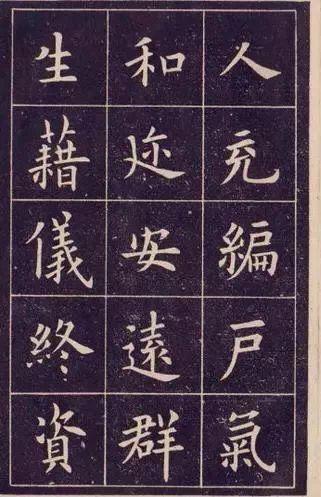 人充編戶氣
和迩安遠群
生藉儀終資